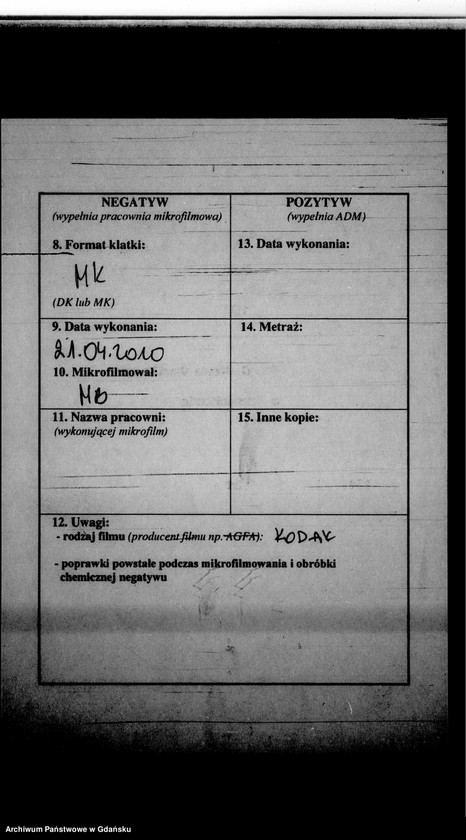 NEGATYW
(wypełnia pracownia mikrofilmowa)
8. Format klatki:
MK
(DK lub MK)
9. Data wykonania:
21.04.2010
10. Mikrofilmował:
Mb
11. Nazwa pracowni:
(wykonującej mikrofilm)
POZYTYW
(wypełnia ADM)
13. Data wykonania:
14. Metraż:
15. Inne kopie:
12. Uwagi:
- rodzaj filmu (producent filmu np. AGFA): KODAK
- poprawki powstałe podczas mikrofilmowania i obróbki
chemicznej negatywu
Archiwum Państwowe w Gdańsku